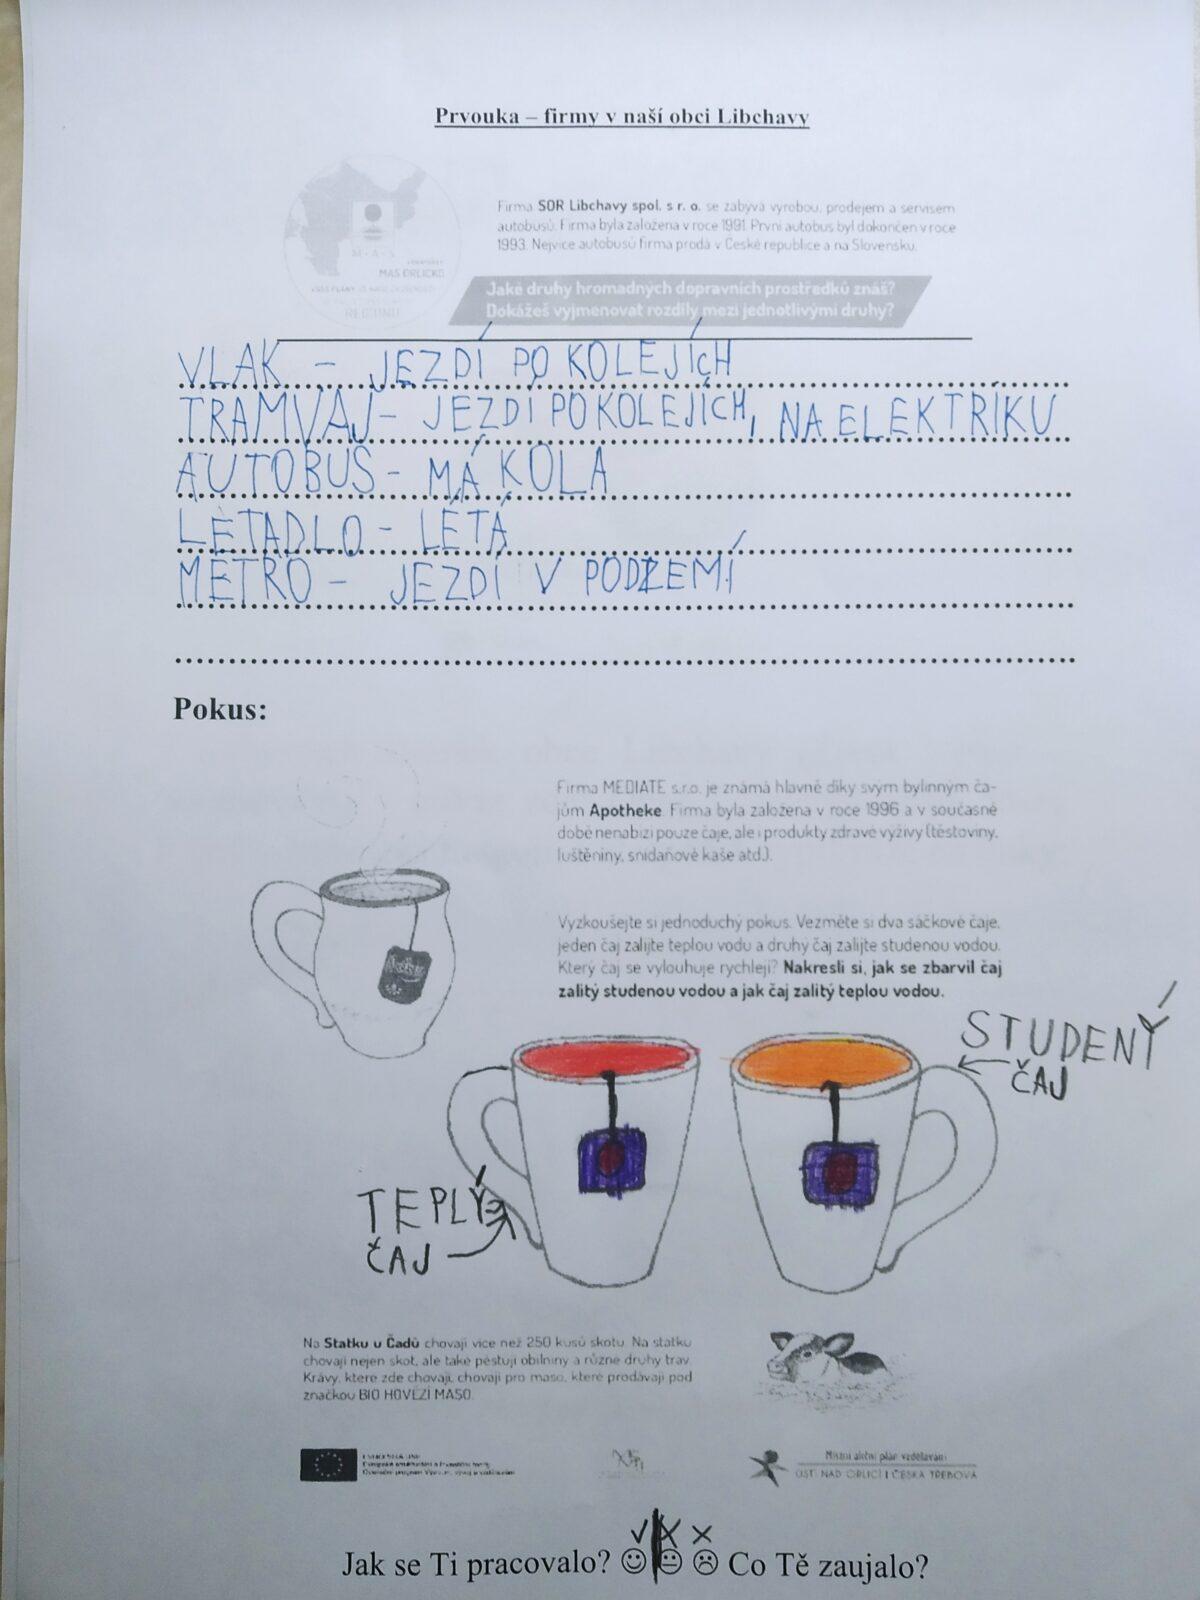 Prvouka – firmy v naší obci Libchavy
Firma SOR Libchavy spol. s r. o. se zabývá výrobou, prodejem a servisem
autobusů. Firma byla založena v roce 1991. První autobus byl dokončen v roce
1993. Nejvíce autobusů firma prodá v České republice a na Slovensku.
M·A·S
MAS ORLICKO
REGIONU
Jaké druhy hromadných dopravních prostředků znáš?
Dokážeš vyjmenovat rozdíly mezi jednotlivými druhy?
VLAK – JEZDÍ PO KOLEJÍCH
TRAMVAJ – JEZDÍ PO KOLEJÍCH, NA ELEKTRIKU
AUTOBUS – MÁ KOLA
LETADLO – LÉTÁ
METRO – JEZDÍ V PODZEMÍ
Pokus:
Firma MEDIATE s.r.o. je známá hlavně díky svým bylinným ča-
jům Apotheke. Firma byla založena v roce 1996 a v současné
době nenabízí pouze čaje, ale i produkty zdravé výživy (těstoviny,
luštěniny, snídaňové kaše atd.).
Vyzkoušejte si jednoduchý pokus. Vezměte si dva sáčkové čaje,
jeden čaj zalijte teplou vodu a druhý čaj zalijte studenou vodou.
Který čaj se vylouhuje rychleji? Nakresli si, jak se zbarvil čaj
zalitý studenou vodou a jak čaj zalitý teplou vodou.
STUDENÝ
ČAJ
TEPLÝ
ČAJ
Na Statku u Čadů chovají více než 250 kusů skotu. Na statku
chovají nejen skot, ale také pěstují obilniny a různé druhy trav.
Krávy, které zde chovají, chovají pro maso, které prodávají pod
značkou BIO HOVĚZÍ MASO.
Místní akční plán vzdělávání
ÚSTÍ NAD ORLICÍ | ČESKÁ TŘEBOVÁ
Jak se Ti pracovalo? ☺ 😐 ☹ Co Tě zaujalo?